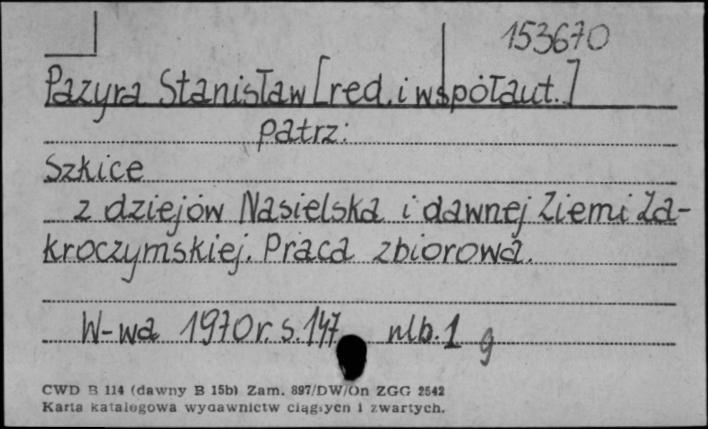 153670
Pazyra Stanisław [red. i współaut.]
patrz:
Szkice
z dziejów Nasielska i dawnej Ziemi Za-
kroczymskiej. Praca zbiorowa.
W-wa 1970 r. s. 147 nlb. 1 g
CWD B 114 (dawny B 15b) Zam. 897/DW/On ZGG 2542
Karta katalogowa wydawnictw ciągłych i zwartych.